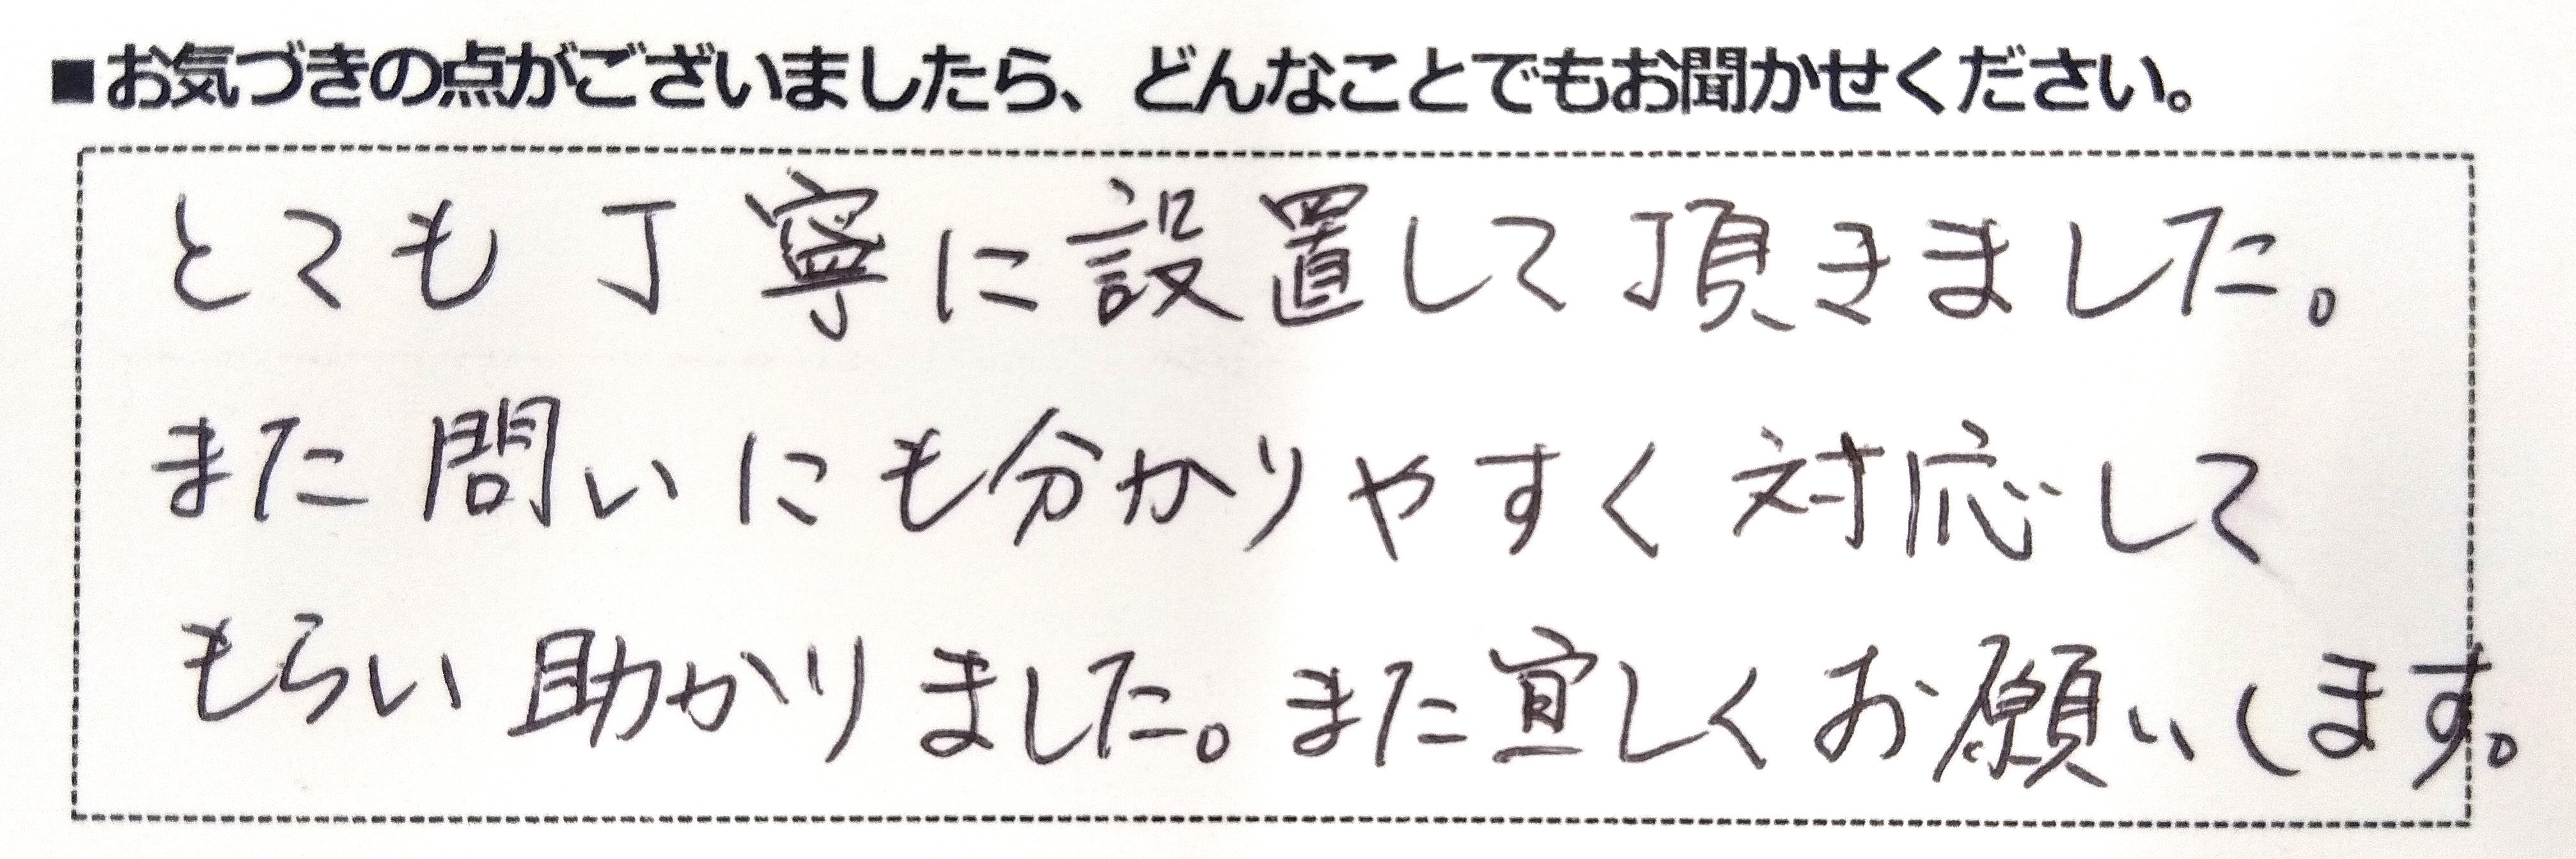 ■お気づきの点がございましたら、どんなことでもお聞かせください。
とても丁寧に設置して頂きました。
また問いにも分かりやすく対応して
もらい助かりました。また宜しくお願いします。